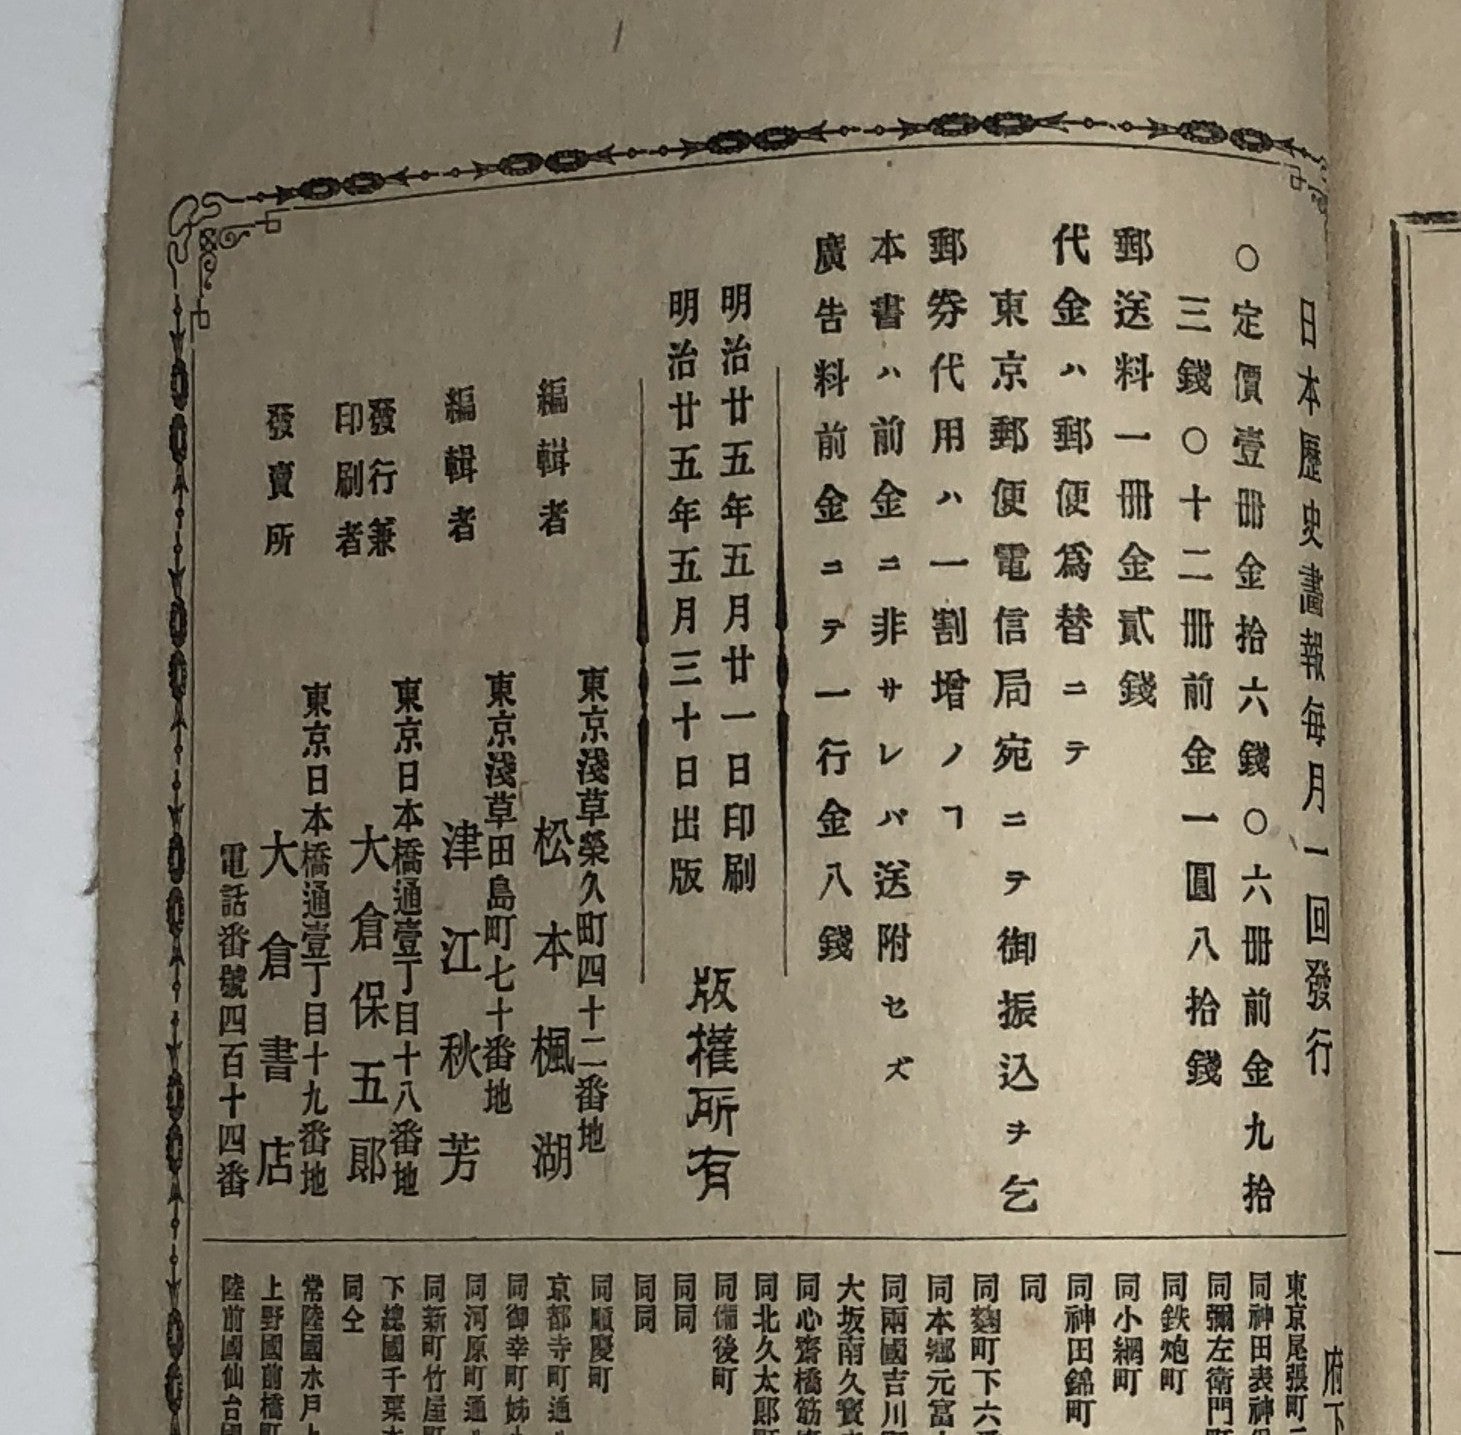 日本歷史畫報毎月一回發行
○定價壹冊金拾六錢○六冊前金九拾
三錢○十二冊前金一圓八拾錢
郵送料一冊金貳錢
代金ハ郵便爲替ニテ
東京郵便電信局宛ニテ御振込ヲ乞
郵劵代用ハ一割增ノヿ
本書ハ前金ニ非サレバ送附セズ
廣告料前金ニテ一行金八錢
明治廿五年五月廿一日印刷
明治廿五年五月三十日出版
版權所有
東京淺草榮久町四十二番地
編輯者 松本楓湖
東京淺草田島町七十番地
編輯者 津江秋芳
東京日本橋通壹丁目十八番地
發行兼
印刷者 大倉保五郎
東京日本橋通壹丁目十九番地
發賣所 大倉書店
電話番號四百十四番
府下
東京尾張町
同神田表神保
同彌左衛門町
同鉄炮町
同小網町
同神田錦町
同
同麹町下六
同本郷元富
同兩國吉川
大坂南久寳
同心齋橋筋
同北久太郎
同備後町
同同
同同
同順慶町
京都寺町通
同御幸町姉
同河原町通
同新町竹屋町
下總國千葉
同仝
常陸國水戸上
上野國前橋町
陸前國仙台國